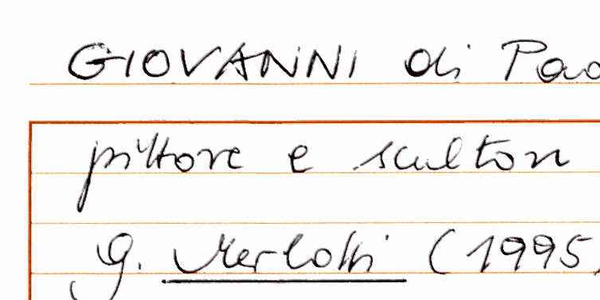 GIOVANNI di Pao
pittore e scultore
G. Merlotti (1995)